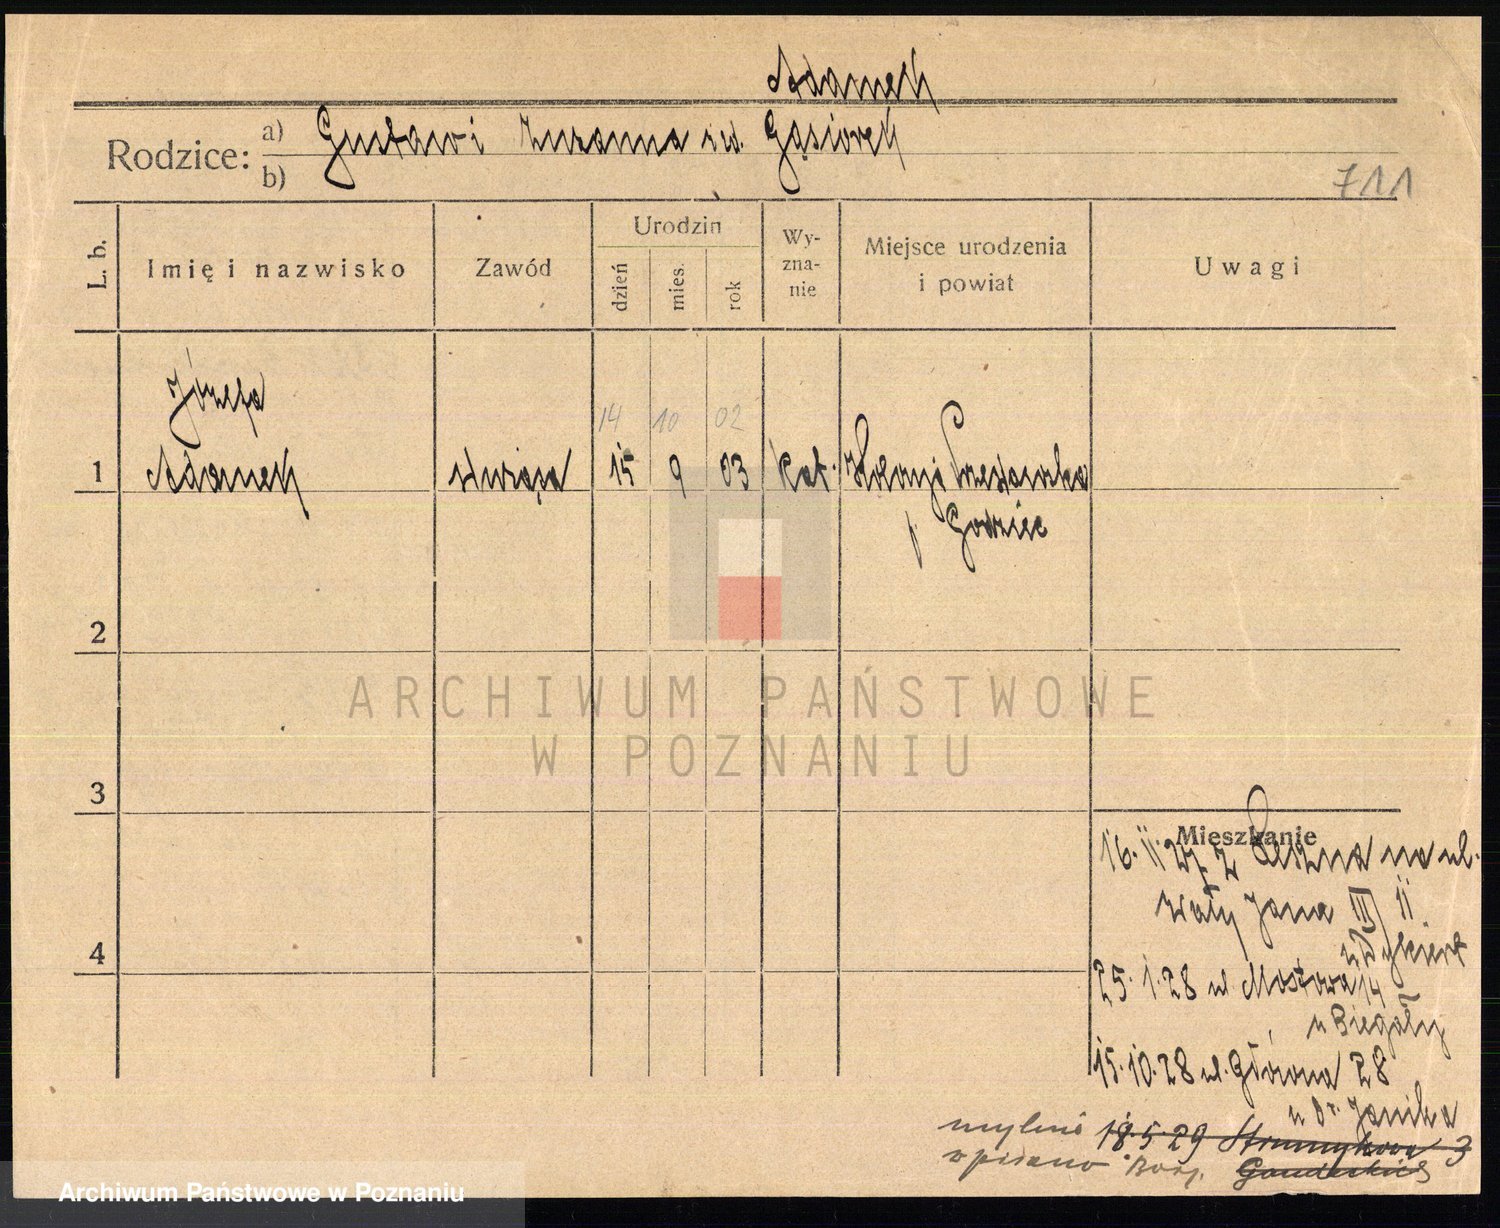 Adamek
Rodzice: a) Gustaw i Zuzanna zd. Gąsiorek
b)
711
L. b.
Imię i nazwisko
Zawód
Urodzin
dzień
mies.
rok
Wy-
zna-
nie
Miejsce urodzenia
i powiat
Uwagi
Józefa
14 10 02
1 Adamek służąca 15 9 03 kat. Kolonja
p Godziec
2
3
4
Mieszkanie
16. 11. 27 z Leszna na ul.
Wały Jana III 11
25. 1. 28 ul Mostowa 14
u Biegały
15. 10. 28 ul. Główna 28
u Dr. Janika
mylnie 18. 5. 29 3
wpisano
ARCHIWUM PAŃSTWOWE
W POZNANIU
Archiwum Państwowe w Poznaniu